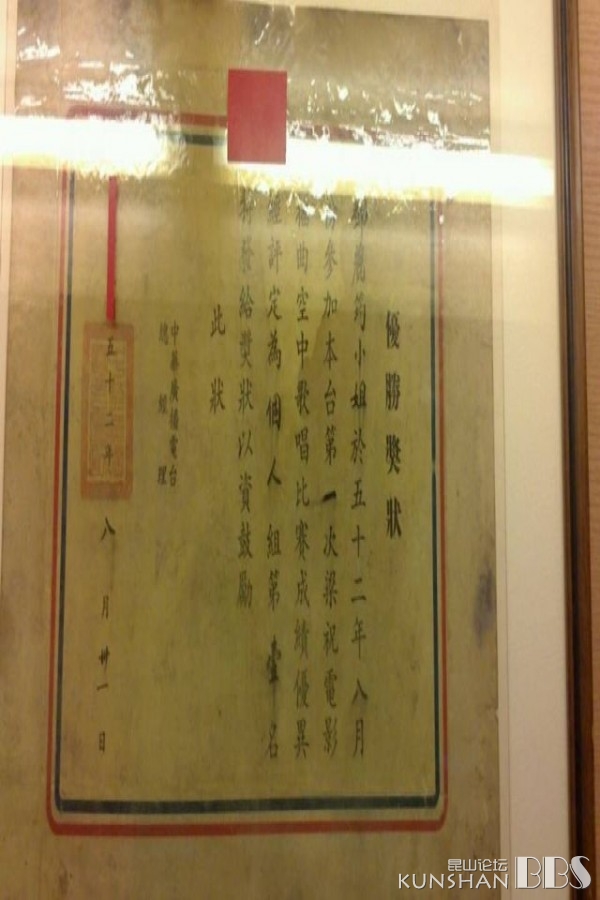 優勝獎狀
鄧麗筠小姐於五十二年八月
參加本台第一次梁祝電影
插曲空中歌唱比賽成績優異
經評定為個人組第壹名
特發給獎狀以資鼓勵
此狀
中華廣播電台
總經理
五十二年八月卅一日
昆山论坛
KUNSHAN BBS